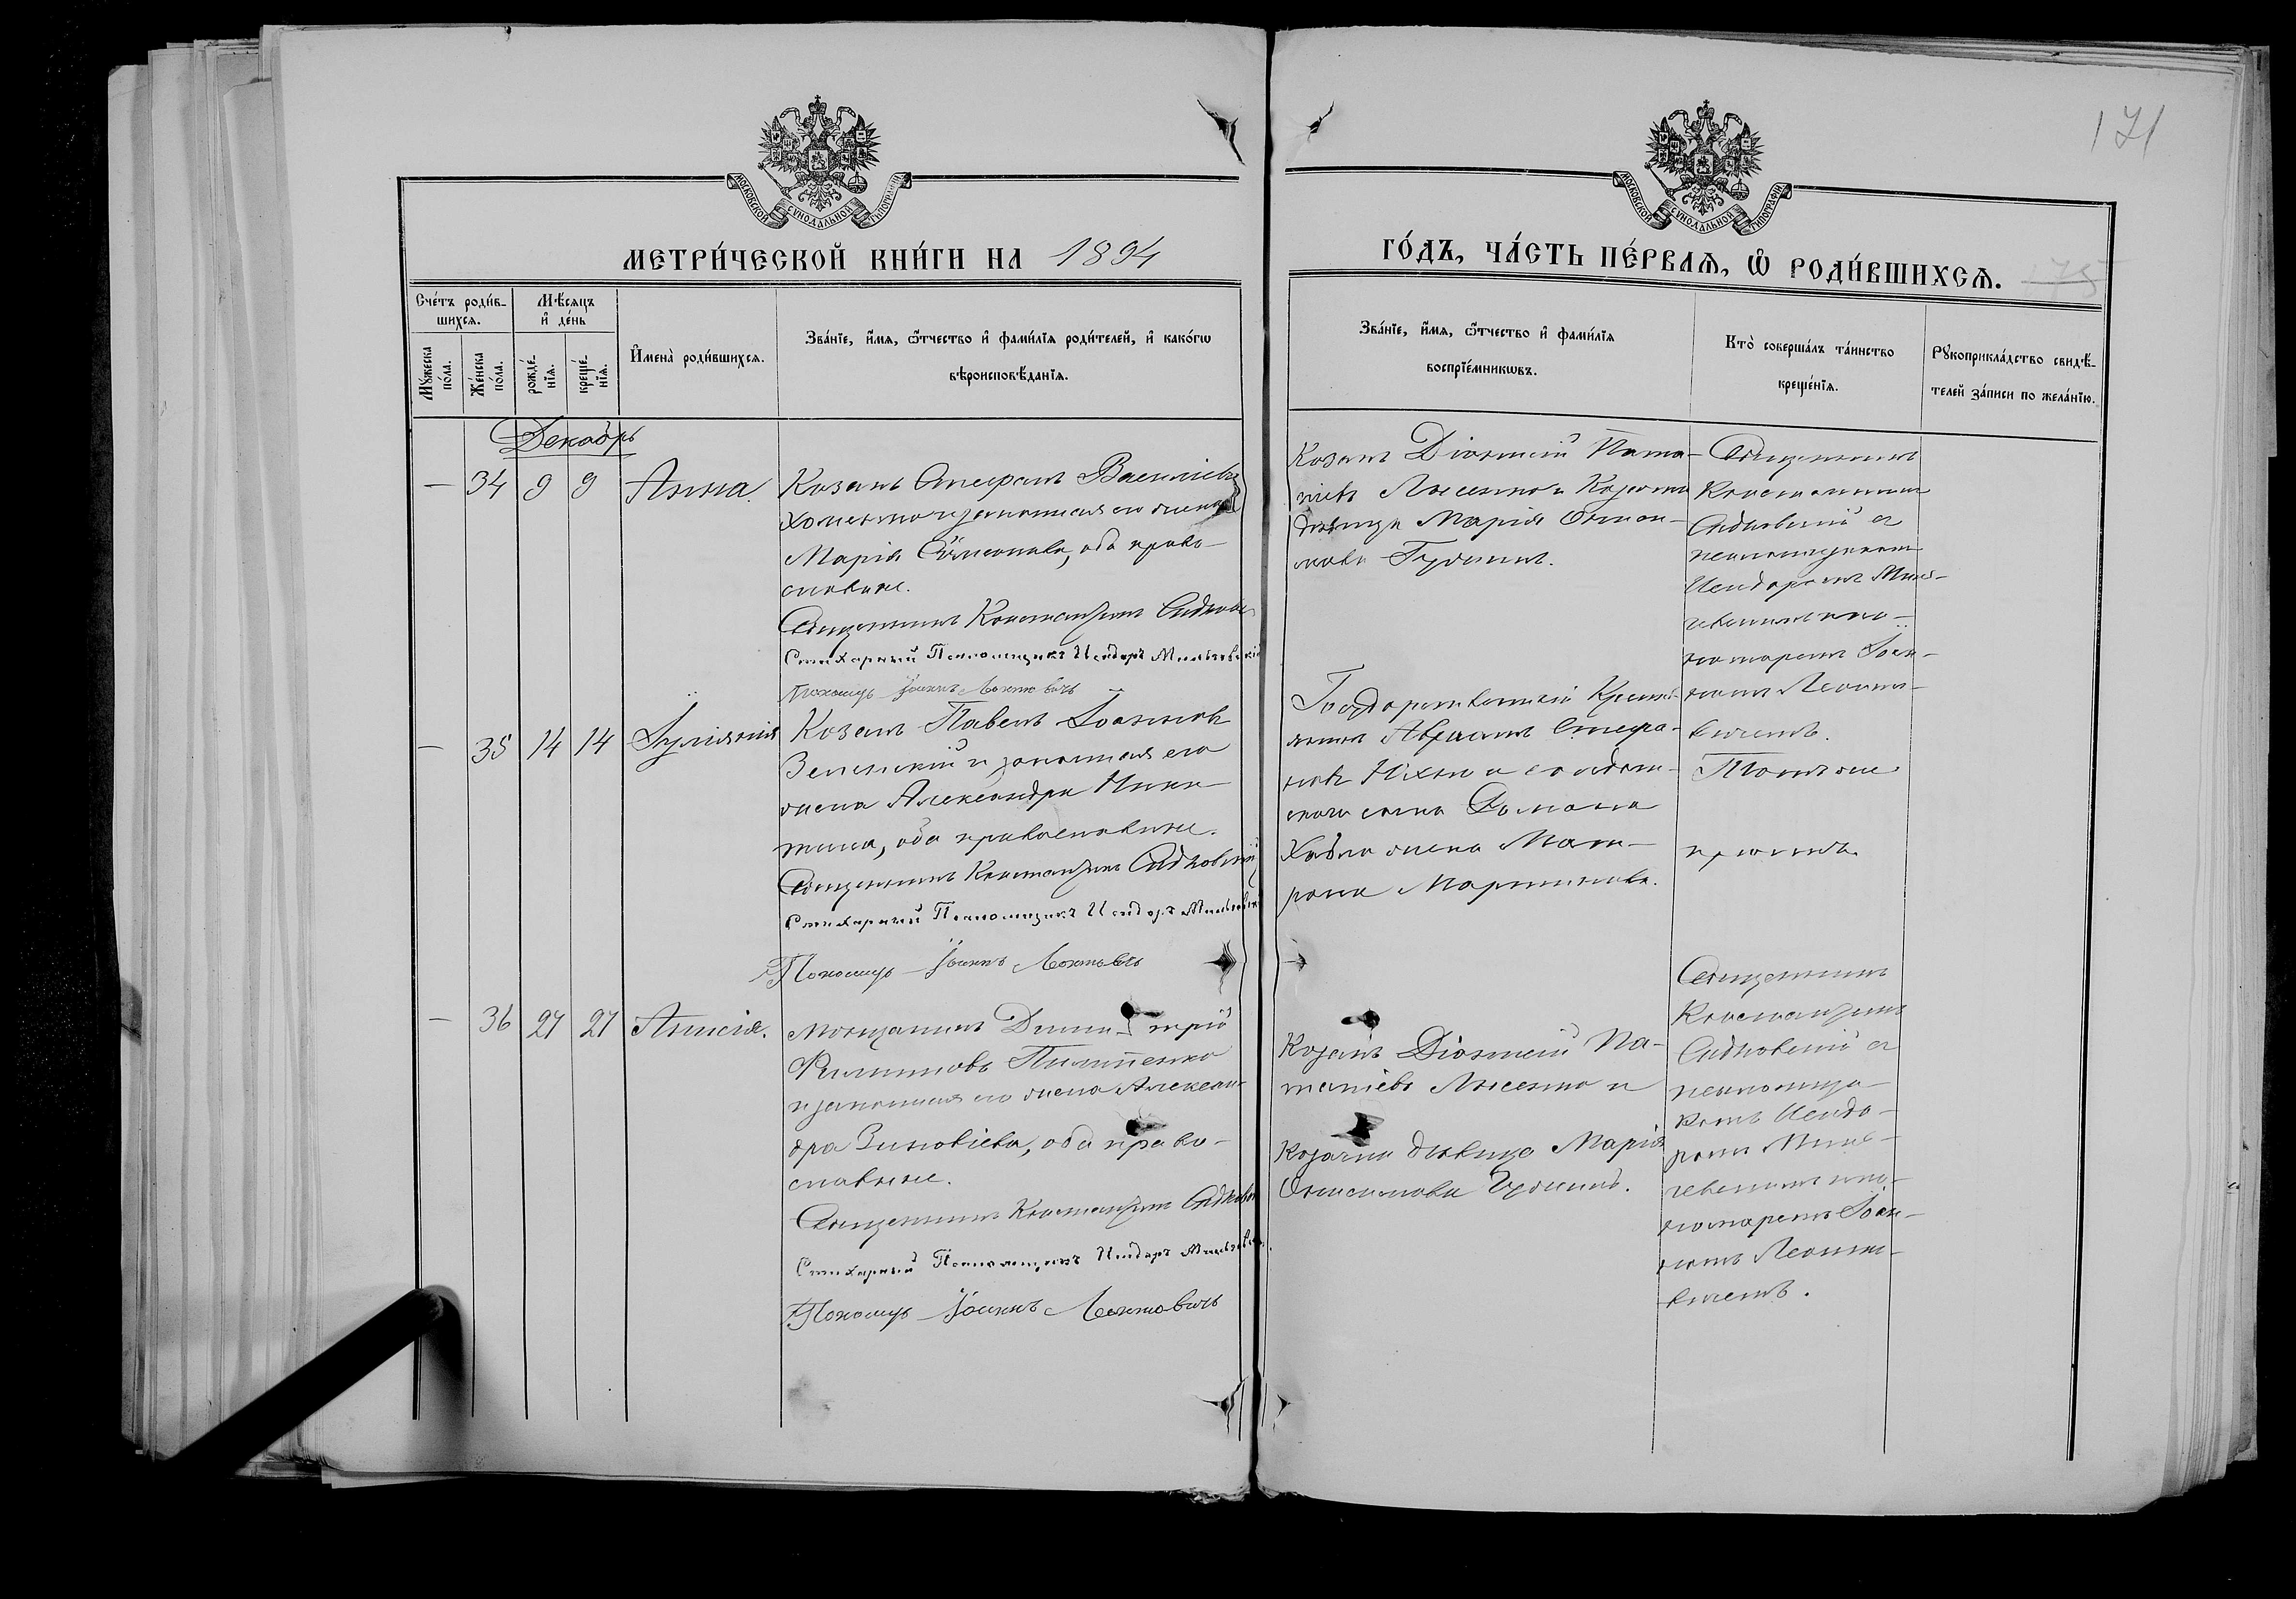 171
МОСКОВСКОЙ СѴНОДАЛЬНОЙ ТИПОГРАФІИ
МОСКОВСКОЙ СѴНОДАЛЬНОЙ ТИПОГРАФІИ
МЕТРИ́ЧЕСКОЙ КНИ́ГИ НА 1894
ГО́ДЪ, ЧА́СТЬ ПЕ́РВАѦ, Ѽ РОДИ́ВШИХСѦ.
175
Сче́тъ роди́в-
шихсѧ.
Мꙋ́жеска
по́ла.
Же́нска
по́ла.
Мѣ́сѧцъ
и҆ де́нь
рожде́-
нїѧ.
креще́-
нїѧ.
И҆мена̀ роди́вшихсѧ.
Зва́нїе, и҆́мѧ, ѻ҆́тчество и҆ фами́лїѧ роди́телей, и҆ како́гѡ
вѣроисповѣ́данїѧ.
Зва́нїе, и҆́мѧ, ѻ҆́тчество и҆ фами́лїѧ
воспрїе́мникѡвъ.
Кто̀ соверша́лъ та́инство
креще́нїѧ.
Рꙋкоприкла́дство свидѣ́-
телей за́писи по жела́нїю.
Декабрь
— 34 9 9 Анна.
Козакъ Стефанъ Василіевъ
Хоменко и законная его жена
Марія Симеонова, оба право-
славные.
Священникъ Константинъ
Стихарный Псаломщикъ Исидоръ
Пономарь Іоаннъ
Козакъ Діонисій Ипа-
тіевъ Лысенко и Козачка
дѣвица Марія Онисі-
мова
Священникъ
Константинъ
съ
псаломщикомъ
Исидоромъ
и по-
номаремъ Іоан-
номъ Леонто-
вичемъ.
— 35 14 14 Іуліанія
Козакъ Павелъ Іоанновъ
Зеленскій и законная его
жена Александра Ники-
тина, оба православные.
Священникъ Константинъ
Стихарный Псаломщикъ Исидоръ
Пономарь Іоаннъ
Государственный Кресть-
янинъ Авраамъ Стефа-
новъ и солдат-
скаго сына Романа
жена Мат-
рона Мартинова.
Тотъ же
причтъ.
— 36 27 27 Анисія.
Мѣщанинъ Дими-трій
Филипповъ Пилипенко
и законная его жена Алексан-
дра Зиновіева, оба право-
славные.
Священникъ Константинъ
Стихарный Псаломщикъ Исидоръ
Пономарь Іоаннъ
Козакъ Діонисій Ипа-
тіевъ Лысенко и
Козачка дѣвица Марія
Онисимова
Священникъ
Константинъ
съ
псаломщи-
комъ Исидо-
ромъ
и по-
номаремъ Іоан-
номъ Леонто-
вичемъ.